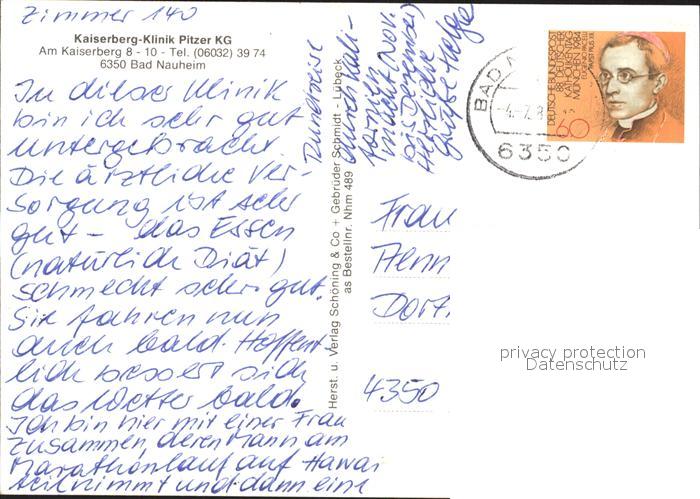 Zimmer 140
Kaiserberg-Klinik Pitzer KG
Am Kaiserberg 8 - 10 - Tel. (06032) 39 74
6350 Bad Nauheim
In dieser Klinik
bin ich sehr gut
untergebracht
Die ärztliche Ver-
sorgung ist sehr
gut - das Essen
(natürlich Diät)
schmeckt sehr gut.
Sie fahren nun
auch bald. Hoffent
lich bessert sich
das Wetter bald.
Ich bin hier mit einer Frau
zusammen, deren Mann am
Marathonlauf auf Hawai
teilnimmt und dann eine
Rundreise
durch Kali-
fornien
macht (Nov.
bis Dezember)
Herzliche
Grüße Helga
Herst. u. Verlag Schöning & Co + Gebrüder Schmidt - Lübeck
as Bestellnr. Nhm 489
DEUTSCHE BUNDESPOST
88. DEUTSCHER
KATHOLIKENTAG
MÜNCHEN 1984
EUGENIO PACELLI
PAPST PIUS XII.
60
BAD N
6350
Frau
Henn
Dort
4350
privacy protection
Datenschutz